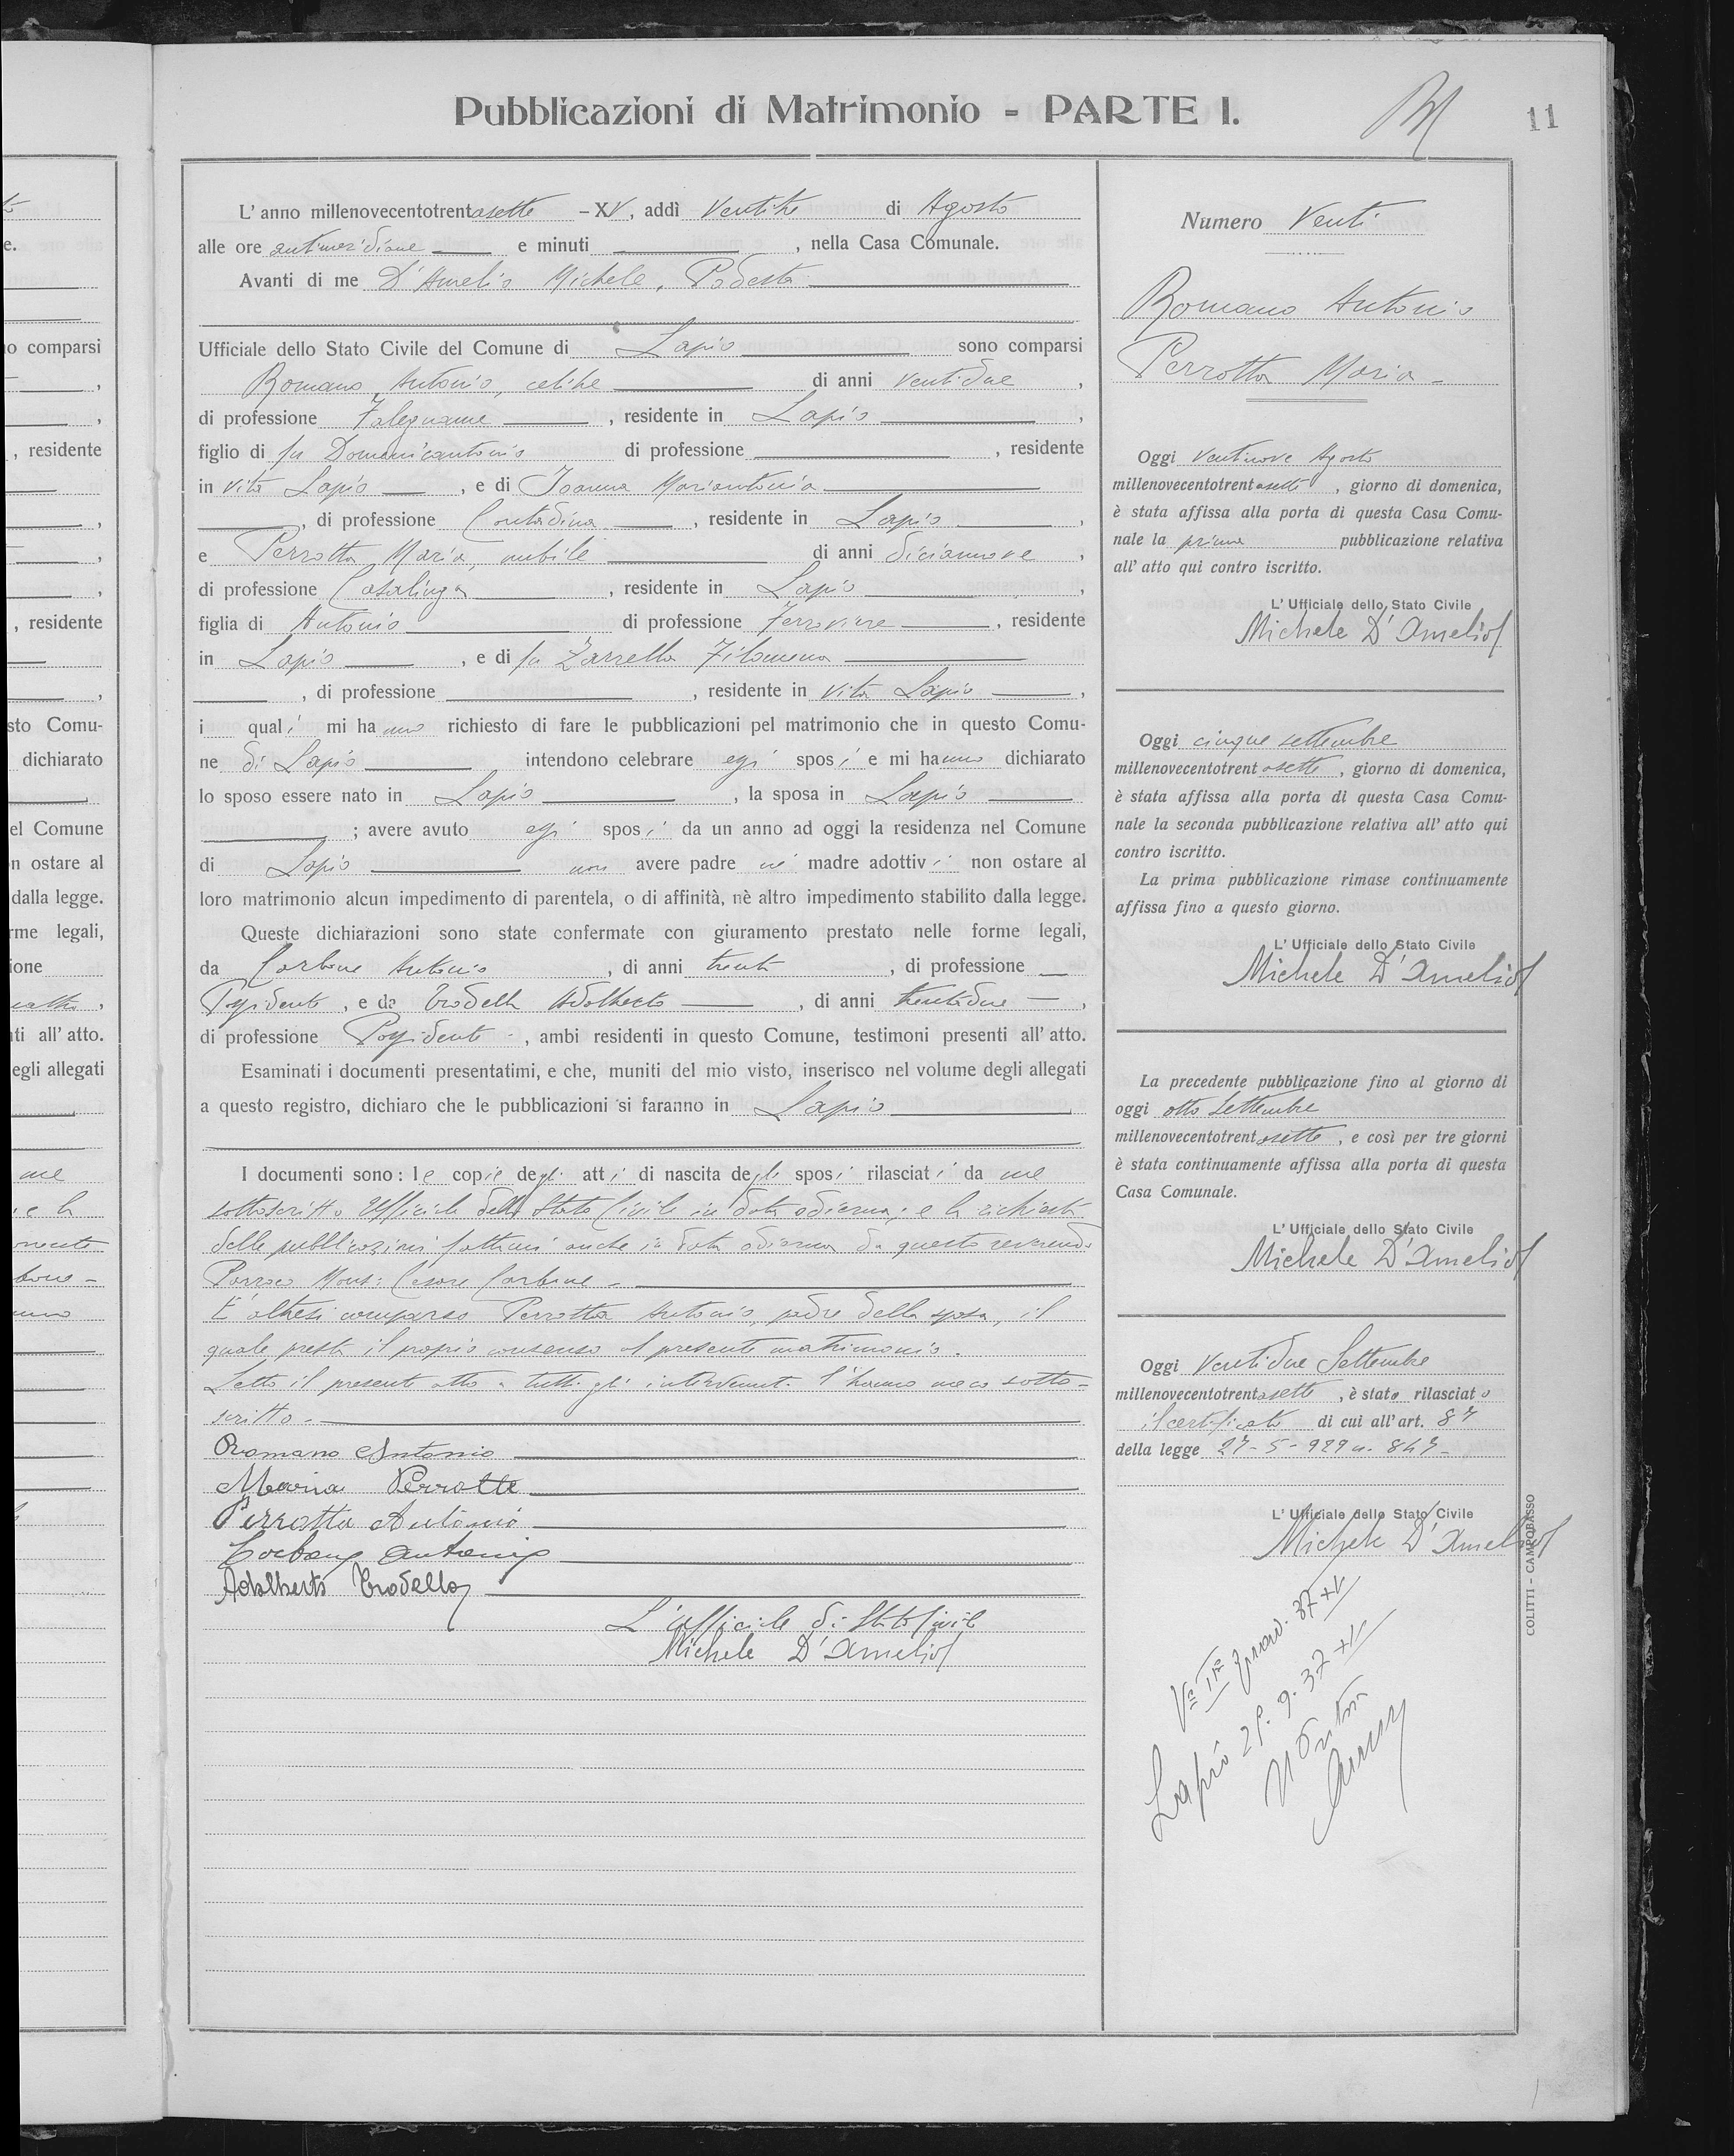 Pubblicazioni di Matrimonio - PARTE I.
11
L'anno millenovecentotrentasette - XV, addì ventitre di Agosto
alle ore antimeridiane e minuti , nella Casa Comunale.
Avanti di me D'Amelio Michele, Podestà
Ufficiale dello Stato Civile del Comune di Lapio sono comparsi
Romano Antonio, celibe di anni ventidue ,
di professione Falegname , residente in Lapio ,
figlio di fu Domenicantonio di professione , residente
in vita Lapio , e di Ioanna Mariantonia
, di professione Contadina , residente in Lapio ,
e Perrotta Maria, nubile di anni diciannove ,
di professione Casalinga , residente in Lapio ,
figlia di Antonio di professione Ferroviere , residente
in Lapio , e di fu Zarrella Filomena
, di professione , residente in vita Lapio ,
i quali mi hanno richiesto di fare le pubblicazioni pel matrimonio che in questo Comu-
ne di Lapio intendono celebrare essi sposi e mi hanno dichiarato
lo sposo essere nato in Lapio , la sposa in Lapio
; avere avuto essi sposi da un anno ad oggi la residenza nel Comune
di Lapio non avere padre nè madre adottivi non ostare al
loro matrimonio alcun impedimento di parentela, o di affinità, nè altro impedimento stabilito dalla legge.
Queste dichiarazioni sono state confermate con giuramento prestato nelle forme legali,
da Carbone Antonio , di anni trenta , di professione
Possidente , e da Trodella Adalberto , di anni trentadue ,
di professione Possidente , ambi residenti in questo Comune, testimoni presenti all'atto.
Esaminati i documenti presentatimi, e che, muniti del mio visto, inserisco nel volume degli allegati
a questo registro, dichiaro che le pubblicazioni si faranno in Lapio
I documenti sono: le copie degli atti di nascita degli sposi rilasciati da me
sottoscritto Ufficiale dello Stato Civile in data odierna; e la richiesta
delle pubblicazioni fattami anche in data odierna da questo reverendo
Parroco Mons: Cesare Carbone -
E' altresì comparso Perrotta Antonio, padre della sposa, il
quale presta il proprio consenso al presente matrimonio.
Letto il presente atto a tutti gli intervenuti l'hanno meco sotto-
scritto -
Romano Antonio
Maria Perrotta
Perrotta Antonio
Carbone Antonio
Adalberto Trodella
L'ufficiale di Stato Civile
Michele D'Amelio
Numero Venti
Romano Antonio
Perrotta Maria -
Oggi ventinove Agosto
millenovecentotrentasette , giorno di domenica,
è stata affissa alla porta di questa Casa Comu-
nale la prima pubblicazione relativa
all'atto qui contro iscritto.
L'Ufficiale dello Stato Civile
Michele D'Amelio
Oggi cinque settembre
millenovecentotrentasette , giorno di domenica,
è stata affissa alla porta di questa Casa Comu-
nale la seconda pubblicazione relativa all'atto qui
contro iscritto.
La prima pubblicazione rimase continuamente
affissa fino a questo giorno.
L'Ufficiale dello Stato Civile
Michele D'Amelio
La precedente pubblicazione fino al giorno di
oggi otto Settembre
millenovecentotrentasette , e così per tre giorni
è stata continuamente affissa alla porta di questa
Casa Comunale.
L'Ufficiale dello Stato Civile
Michele D'Amelio
Oggi ventidue Settembre
millenovecentotrentasette , è stato rilasciato
il certificato di cui all'art. 87
della legge 27-5-929 n. 847-
L'Ufficiale dello Stato Civile
Michele D'Amelio
37 XV
Lapio 25.9.37 XV
COLITTI - CAMPOBASSO
o comparsi
, residente
, residente
sto Comu-
dichiarato
el Comune
n ostare al
dalla legge.
rme legali,
ione
ti all'atto.
egli allegati
me